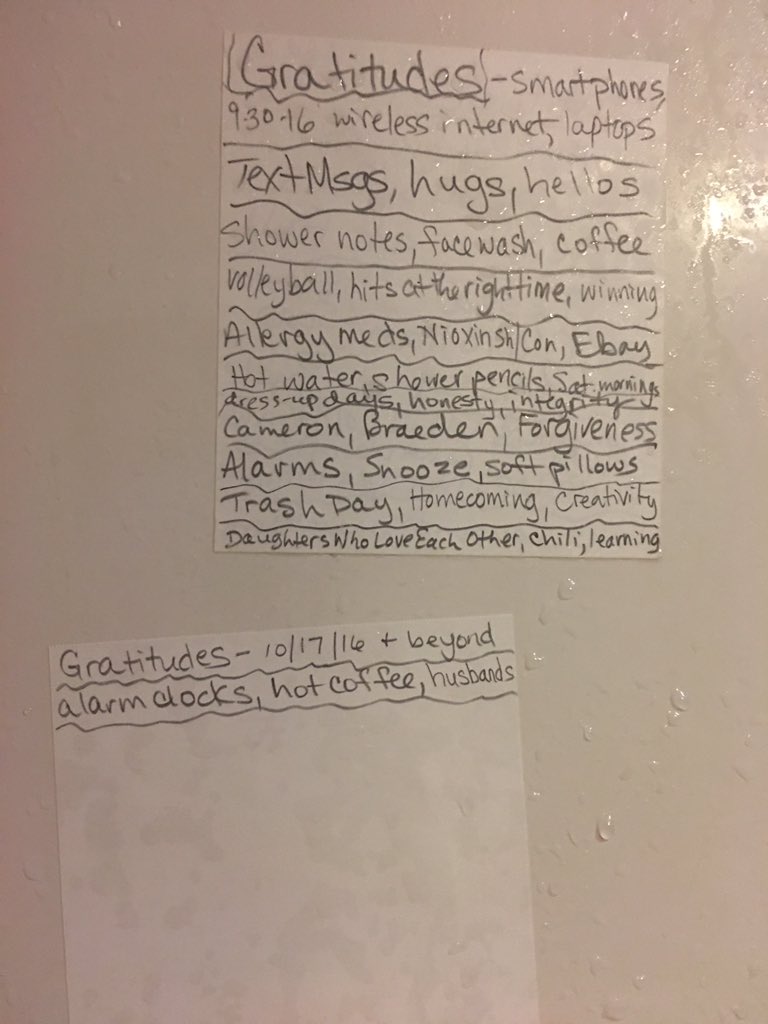 (Gratitudes) - smartphones,
9-30-16 wireless internet, laptops
Text Msgs, hugs, hellos
Shower notes, facewash, coffee
volleyball, hits at the right time, winning
Allergy meds, Nioxin sh/con, Ebay
Hot water, shower pencils, Sat. mornings
dress-up days, honesty, integrity
Cameron, Braeden, Forgiveness
Alarms, Snooze, soft pillows
Trash Day, Homecoming, Creativity
Daughters Who Love Each Other, Chili, learning
Gratitudes - 10/17/16 + beyond
alarm clocks, hot coffee, husbands